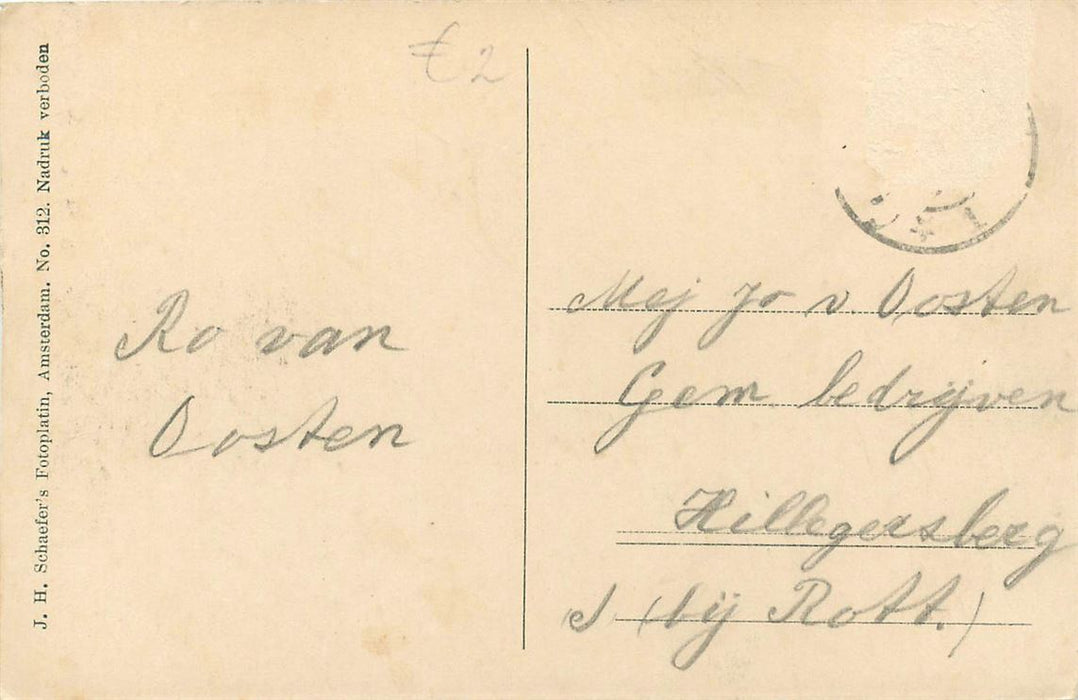 J. H. Schaefer's Fotoplatin, Amsterdam. No. 312. Nadruk verboden
€ 2
Ro van
Oosten
Mej Jo v. Oosten
Gem bedrijven
Hillegersberg
(bij Rott.)